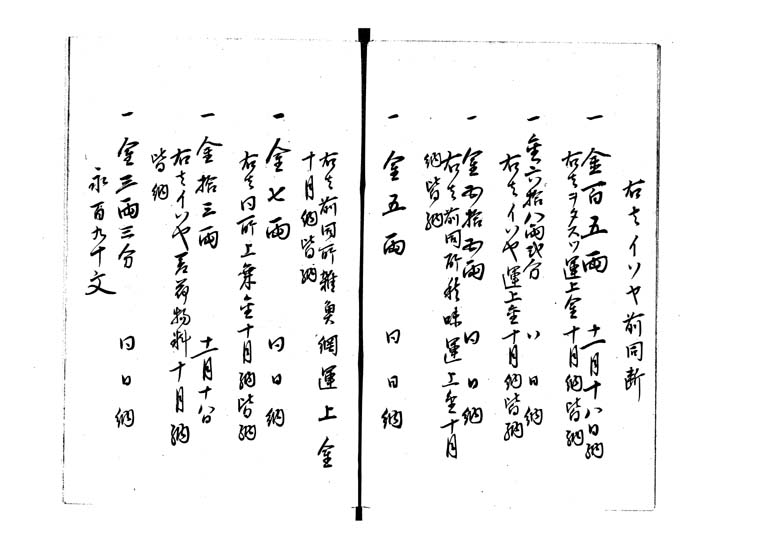 右者イソヤ前同断
一 金百五両 十一月十八日納
右者ヲタスツ運上金十月納皆納
一 金六拾八両弐分 同日納
右者イソヤ運上金十月納皆納
一 金五拾五両 同日納
右者前同所秋味運上金十月
納皆納
一 金五両 同日納
右者前同所雑魚網運上金
十月納皆納
一 金七両 同日納
右者同所上乗金十月納皆納
一 金拾三両 十一月十八日
右者イソヤ差荷物料十月納
皆納
一 金三両三分 同日納
永百九十文